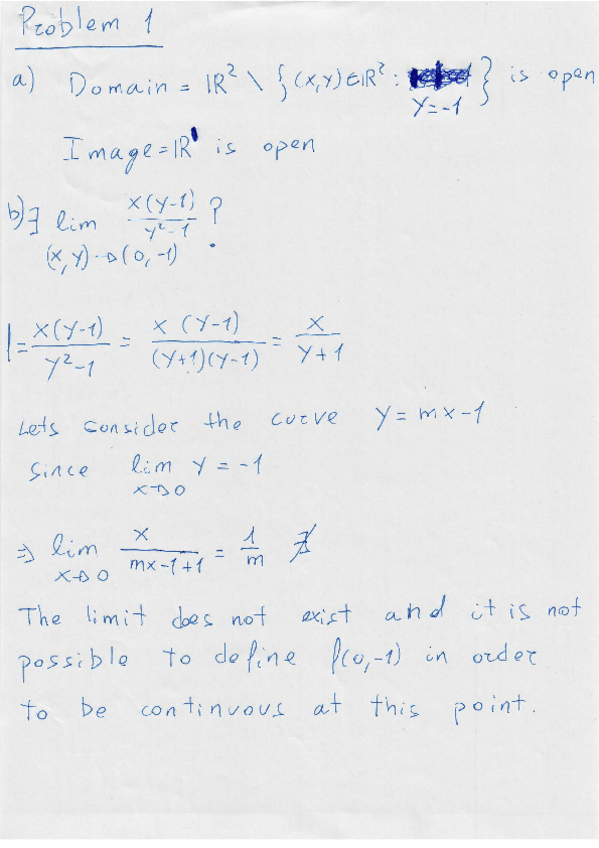 Problem 1
a) Domain = ℝ² \ {(x,y)∈ℝ² : y=-1} is open
Image = ℝ' is open
b) ∃ lim (x,y)→(0,-1) x(y-1)/(y²-1) ?
l = x(y-1)/(y²-1) = x(y-1)/((y+1)(y-1)) = x/(y+1)
Lets consider the curve y = mx-1
Since lim x→0 y = -1
⇒ lim x→0 x/(mx-1+1) = 1/m ∄
The limit does not exist and it is not
possible to define f(0,-1) in order
to be continuous at this point.